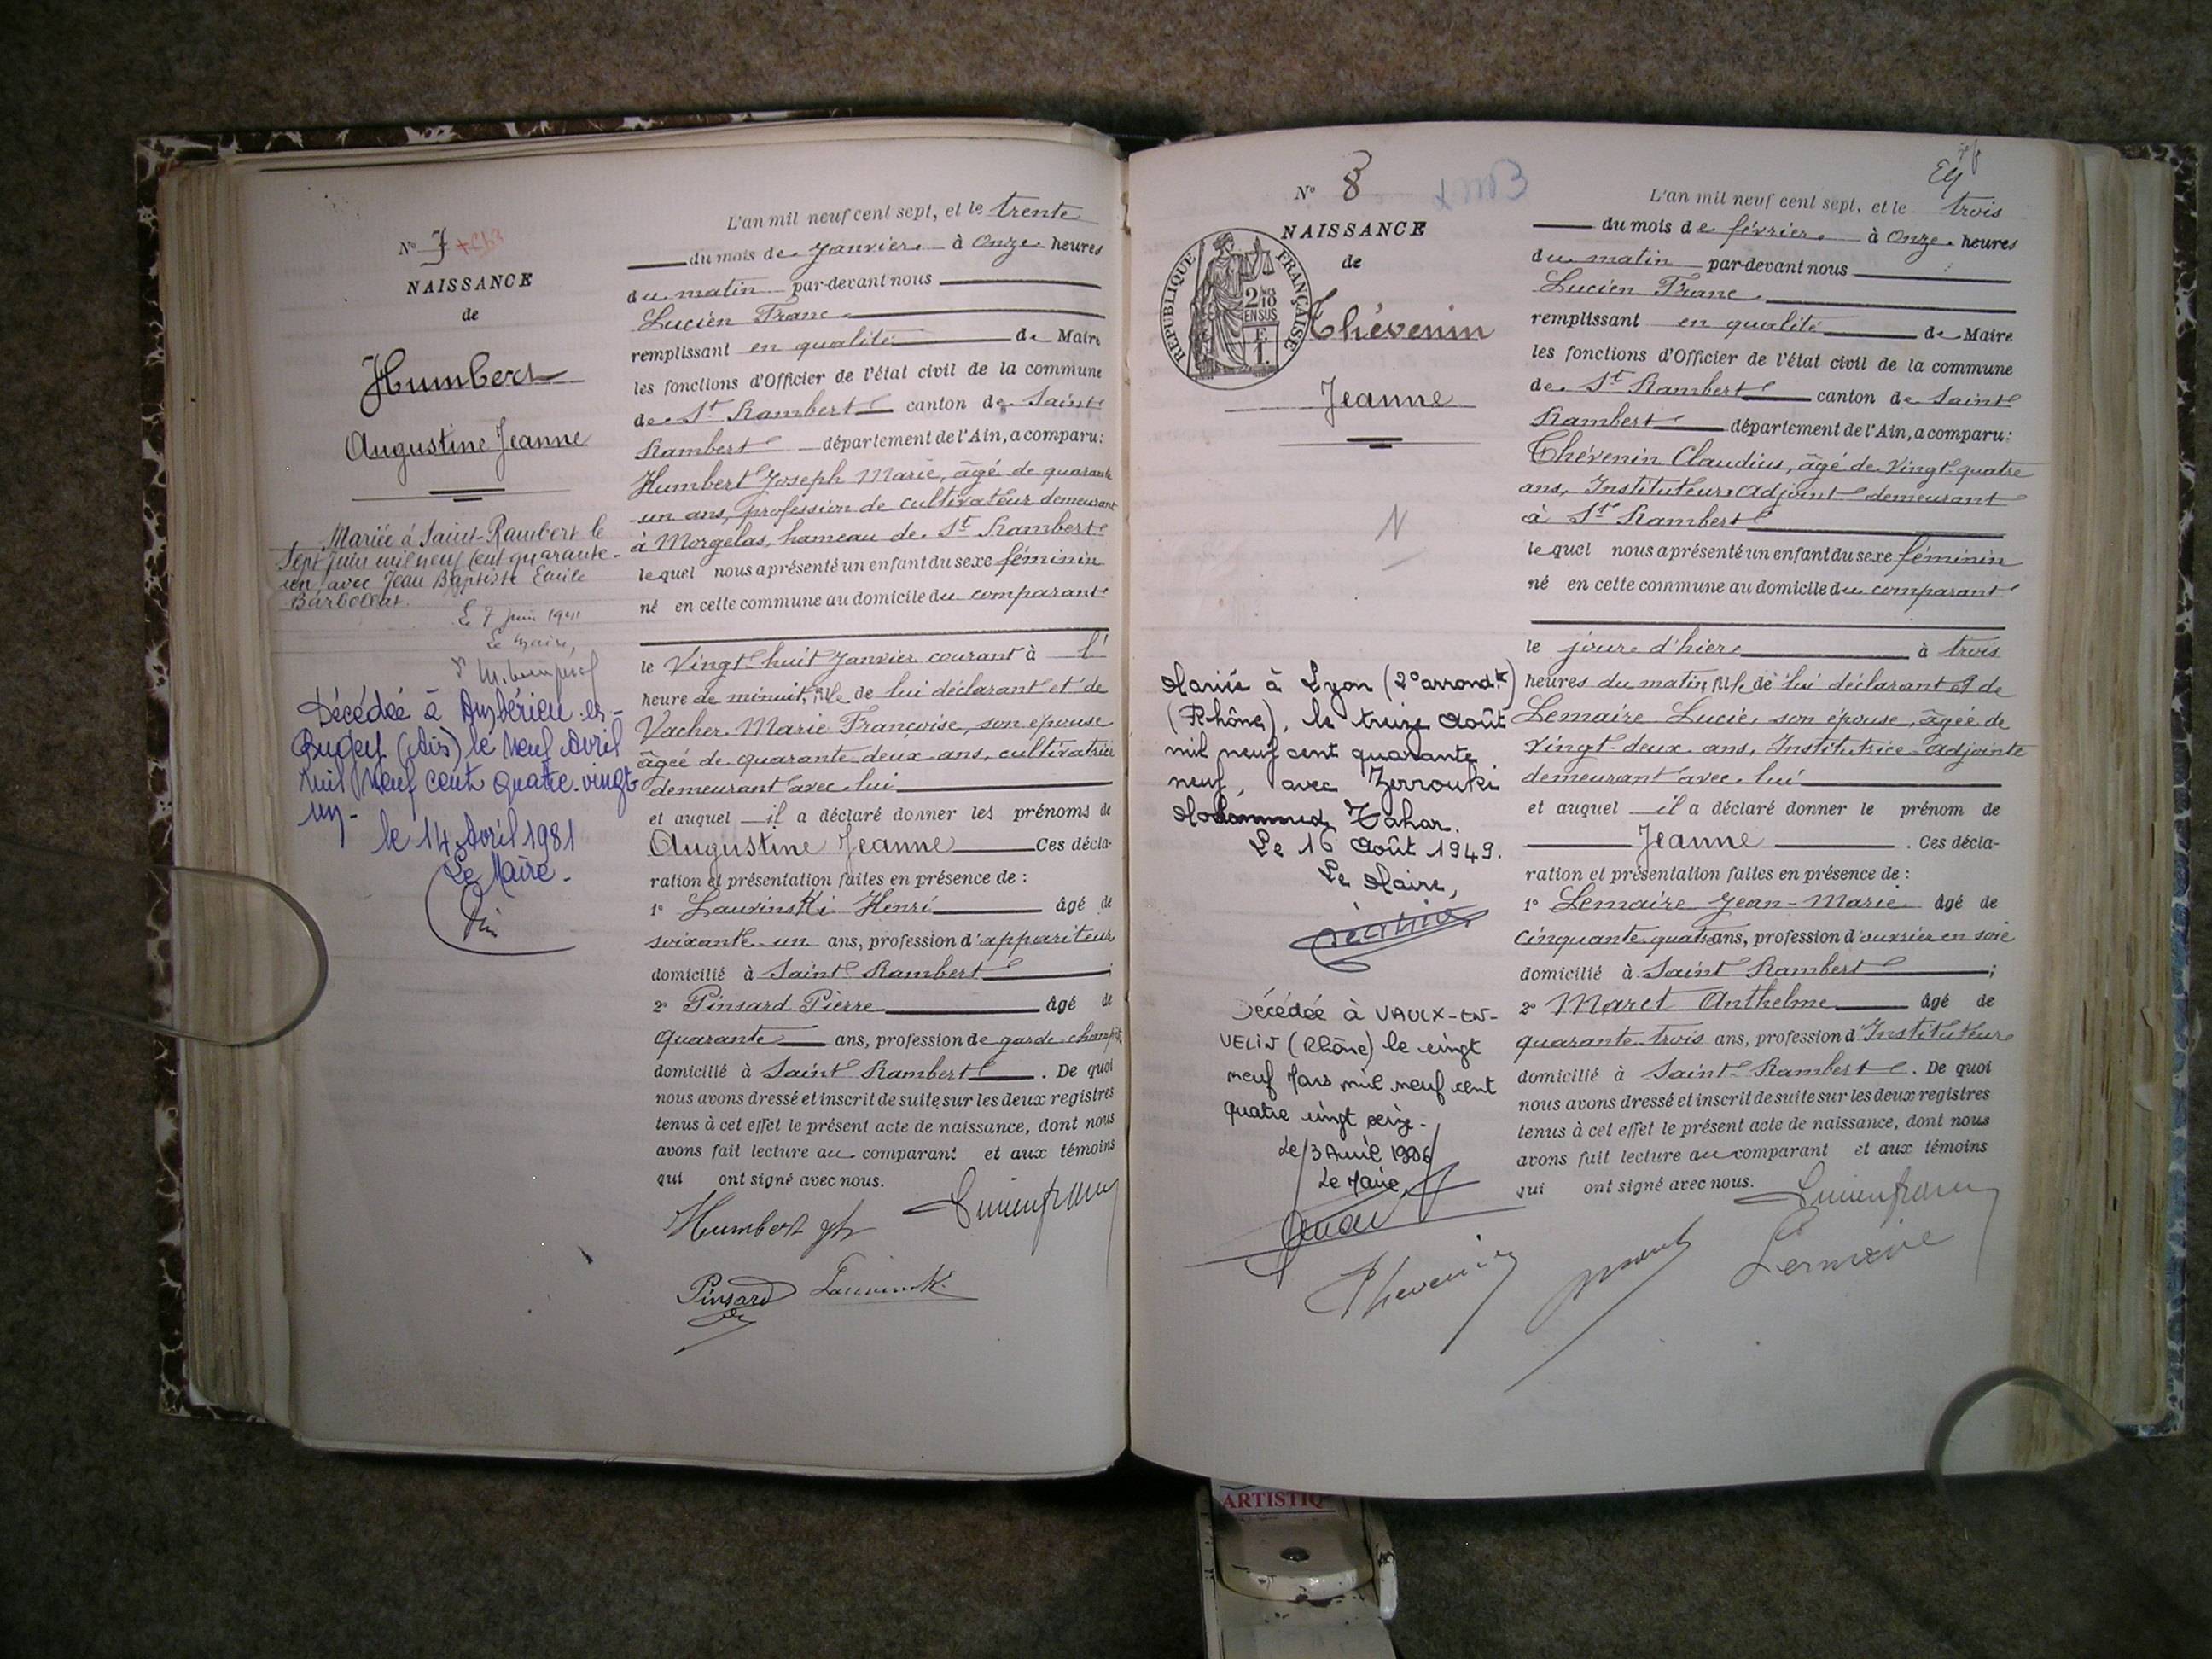 N° 7
NAISSANCE
de
Humbert
Augustine Jeanne
Mariée à Saint-Rambert le
sept juin mil neuf cent quarante-
un avec Jean Baptiste Emile
Barbollat.
Le 7 juin 1941
Le Maire,
Décédée à Ambérieu-en-
Bugey (Ain) le Neuf Avril
Mil Neuf cent quatre-vingt
un-
le 14 Avril 1981
Le Maire-
L'an mil neuf cent sept, et le trente
du mois de Janvier à Onze heures
du matin par-devant nous
Lucien Franc
remplissant en qualité de Maire
les fonctions d'Officier de l'état civil de la commune
de St Rambert canton de Saint
Rambert département de l'Ain, a comparu:
Humbert Joseph Marie, âgé de quarante
un ans, profession de cultivateur demeurant
à Morgelas, hameau de St Rambert
lequel nous a présenté un enfant du sexe féminin
né en cette commune au domicile du comparant
le Vingt-huit Janvier courant à l'
heure de minuit, fille de lui déclarant et de
Vacher Marie Françoise, son épouse
âgée de quarante deux ans, cultivatrice
demeurant avec lui
et auquel il a déclaré donner les prénoms de
Augustine Jeanne Ces décla-
ration et présentation faites en présence de :
1° Laurinski Henri âgé de
soixante un ans, profession d'appariteur
domicilié à Saint Rambert ;
2° Pinsard Pierre âgé de
quarante ans, profession de garde-champêt.
domicilié à Saint Rambert . De quoi
nous avons dressé et inscrit de suite sur les deux registres
tenus à cet effet le présent acte de naissance, dont nous
avons fait lecture au comparant et aux témoins
qui ont signé avec nous.
Humbert jh Lucien franc
Pinsard Laurinski
N° 8
NAISSANCE
de
RÉPUBLIQUE FRANÇAISE
2/10 EN SUS
Thévenin
Jeanne
N
Mariée à Lyon (2° arrondt)
(Rhône), le treize Août
mil neuf cent quarante
neuf, avec Zerrouki
Mohammed Tahar.
Le 16 Août 1949.
Le Maire,
Décédée à VAULX-EN-
VELIN (Rhône) le vingt
neuf Mars mil neuf cent
quatre vingt seize.
Le 3 Avril 1996
Le Maire
L'an mil neuf cent sept, et le trois
du mois de février à Onze heures
du matin par-devant nous
Lucien Franc
remplissant en qualité de Maire
les fonctions d'Officier de l'état civil de la commune
de St Rambert canton de Saint
Rambert département de l'Ain, a comparu:
Thévenin Claudius, âgé de Vingt-quatre
ans, Instituteur Adjoint demeurant
à St Rambert
lequel nous a présenté un enfant du sexe féminin
né en cette commune au domicile du comparant
le jour d'hier à trois
heures du matin, fille de lui déclarant et de
Lemaire Lucie, son épouse, âgée de
vingt-deux ans, Institutrice-Adjointe
demeurant avec lui
et auquel il a déclaré donner le prénom de
Jeanne . Ces décla-
ration et présentation faites en présence de :
1° Lemaire Jean-Marie âgé de
cinquante quatre ans, profession d'ouvrier en soie
domicilié à Saint Rambert ;
2° Maret Anthelme âgé de
quarante-trois ans, profession d'Instituteur
domicilié à Saint-Rambert . De quoi
nous avons dressé et inscrit de suite sur les deux registres
tenus à cet effet le présent acte de naissance, dont nous
avons fait lecture au comparant et aux témoins
qui ont signé avec nous. Lucien franc
Thevenin Maret Lemaire
ARTISTIQ